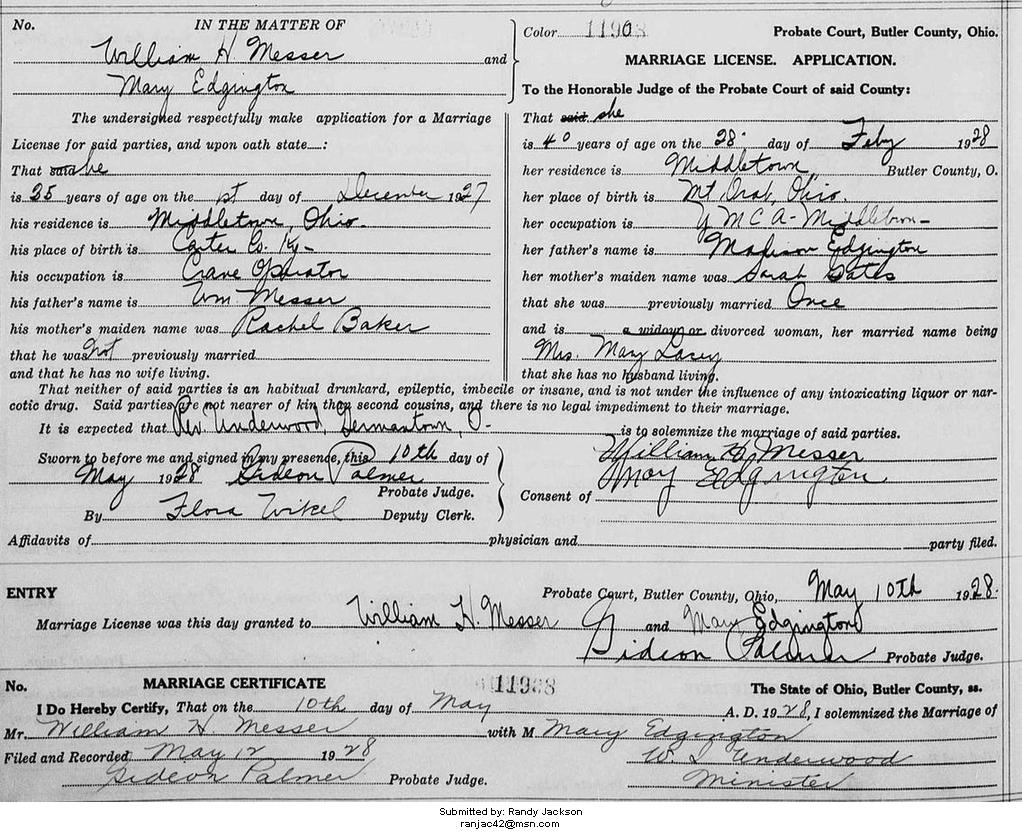 No. IN THE MATTER OF
William H. Messer and
Mary Edgington
The undersigned respectfully make application for a Marriage
License for said parties, and upon oath state :
That said he
is 35 years of age on the 1st day of December 1927
his residence is Middletown, Ohio.
his place of birth is Carter Co. Ky-
his occupation is Crane Operator
his father's name is Wm Messer
his mother's maiden name was Rachel Baker
that he was not previously married
and that he has no wife living.
Color Probate Court, Butler County, Ohio.
MARRIAGE LICENSE. APPLICATION.
To the Honorable Judge of the Probate Court of said County:
That said she
is 40 years of age on the 28 day of Feby 1928
her residence is Middletown, Butler County, O.
her place of birth is Mt Orab, Ohio.
her occupation is Y M C A - Middletown-
her father's name is Madison Edgington
her mother's maiden name was Sarah Bates
that she was previously married Once
and is a widow or divorced woman, her married name being
Mrs. Mary Lacey
that she has no husband living.
That neither of said parties is an habitual drunkard, epileptic, imbecile or insane, and is not under the influence of any intoxicating liquor or nar-
cotic drug. Said parties are not nearer of kin than second cousins, and there is no legal impediment to their marriage.
It is expected that Rev. Underwood, Germantown, O- is to solemnize the marriage of said parties.
Sworn to before me and signed in my presence, this 10th day of
May 1928 Gideon Palmer
Probate Judge.
By Flora Deputy Clerk.
William H. Messer
Mary Edgington
Consent of
Affidavits of physician and party filed.
ENTRY Probate Court, Butler County, Ohio, May 10th 1928.
Marriage License was this day granted to William H. Messer and Mary Edgington
Gideon Palmer Probate Judge.
No. MARRIAGE CERTIFICATE The State of Ohio, Butler County, ss.
I Do Hereby Certify, That on the 10th day of May A. D. 1928, I solemnized the Marriage of
Mr. William H Messer with M Mary Edgington
Filed and Recorded May 12 1928 W. I Underwood
Gideon Palmer Probate Judge. Minister
Submitted by: Randy Jackson
ranjac42@msn.com